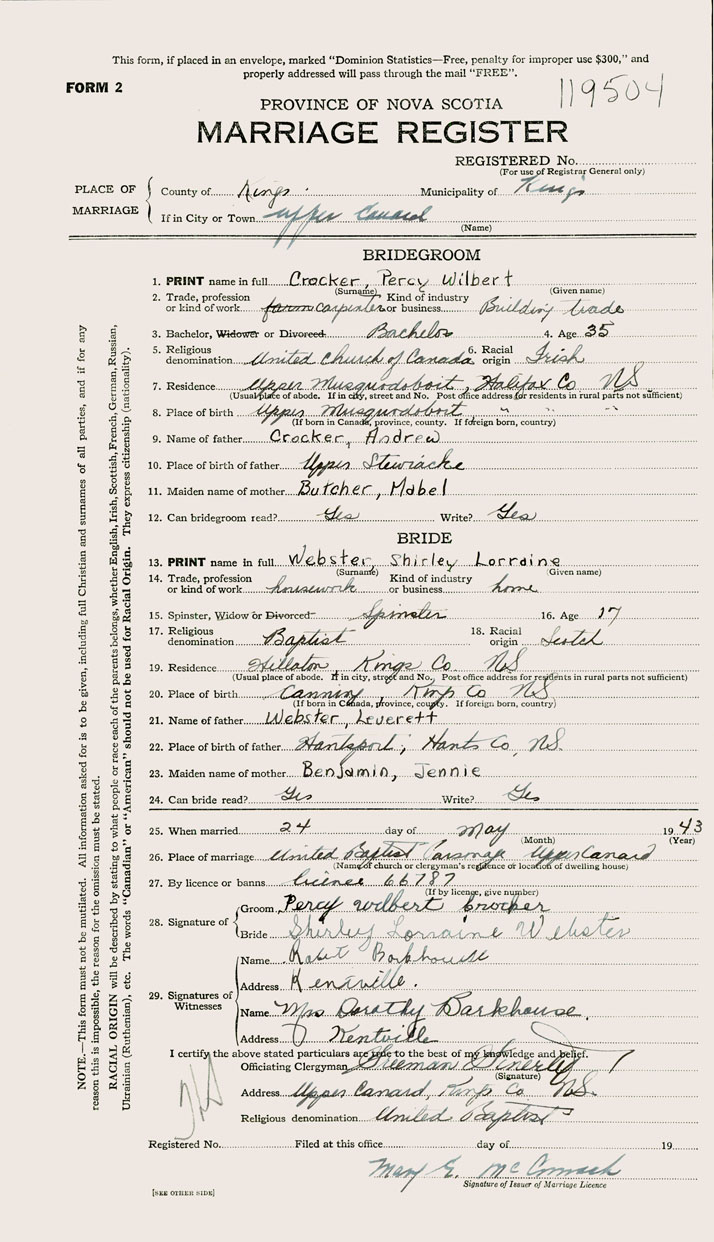 This form, if placed in an envelope, marked "Dominion Statistics—Free, penalty for improper use $300," and
properly addressed will pass through the mail "FREE".
FORM 2
119504
PROVINCE OF NOVA SCOTIA
MARRIAGE REGISTER
REGISTERED No.
(For use of Registrar General only)
PLACE OF MARRIAGE
County of Kings Municipality of Kings
If in City or Town Upper Canard
(Name)
BRIDEGROOM
1. PRINT name in full Crocker, Percy Wilbert
(Surname) (Given name)
2. Trade, profession or kind of work farm carpenter Kind of industry or business Building trade
3. Bachelor, Widower or Divorced Bachelor 4. Age 35
5. Religious denomination United Church of Canada 6. Racial origin Irish
7. Residence Upper Musquodoboit, Halifax Co NS
(Usual place of abode. If in city, street and No. Post office address for residents in rural parts not sufficient)
8. Place of birth Upper Musquodoboit, " " "
(If born in Canada, province, county. If foreign born, country)
9. Name of father Crocker, Andrew
10. Place of birth of father Upper Stewiacke
11. Maiden name of mother Butcher, Mabel
12. Can bridegroom read? Yes Write? Yes
BRIDE
13. PRINT name in full Webster, Shirley Lorraine
(Surname) (Given name)
14. Trade, profession or kind of work housework Kind of industry or business home
15. Spinster, Widow or Divorced Spinster 16. Age 17
17. Religious denomination Baptist 18. Racial origin Scotch
19. Residence Hillaton, Kings Co NS
(Usual place of abode. If in city, street and No. Post office address for residents in rural parts not sufficient)
20. Place of birth Canning, Kings Co NS
(If born in Canada, province, county. If foreign born, country)
21. Name of father Webster, Leverett
22. Place of birth of father Hantsport, Hants Co, NS.
23. Maiden name of mother Benjamin, Jennie
24. Can bride read? Yes Write? Yes
25. When married 24 day of May 1943
(Month) (Year)
26. Place of marriage United Baptist Parsonage Upper Canard
(Name of church or clergyman's residence or location of dwelling house)
27. By licence or banns licence 66787
(If by licence, give number)
28. Signature of Groom Percy Wilbert Crocker
Bride Shirley Lorraine Webster
29. Signatures of Witnesses
Name Robert Barkhouse
Address Kentville.
Name Mrs Dorothy Barkhouse.
Address Kentville
I certify the above stated particulars are true to the best of my knowledge and belief.
Officiating Clergyman Freeman
(Signature)
Address Upper Canard, Kings Co NS.
Religious denomination United Baptist
Registered No. Filed at this office day of 19
Mary E. McCormack
Signature of Issuer of Marriage Licence
[SEE OTHER SIDE]
NOTE.—This form must not be mutilated. All information asked for is to be given, including full Christian and surnames of all parties, and if for any
reason this is impossible, the reason for the omission must be stated.
RACIAL ORIGIN will be described by stating to what people or race each of the parents belongs, whether English, Irish, Scottish, French, German, Russian,
Ukrainian (Ruthenian), etc. The words "Canadian" or "American" should not be used for Racial Origin. They express citizenship (nationality).